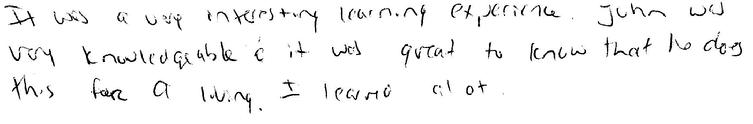 It was a very interesting learning experience. John was
very knowledgeable & it was great to know that he does
this for a living. I learned alot.